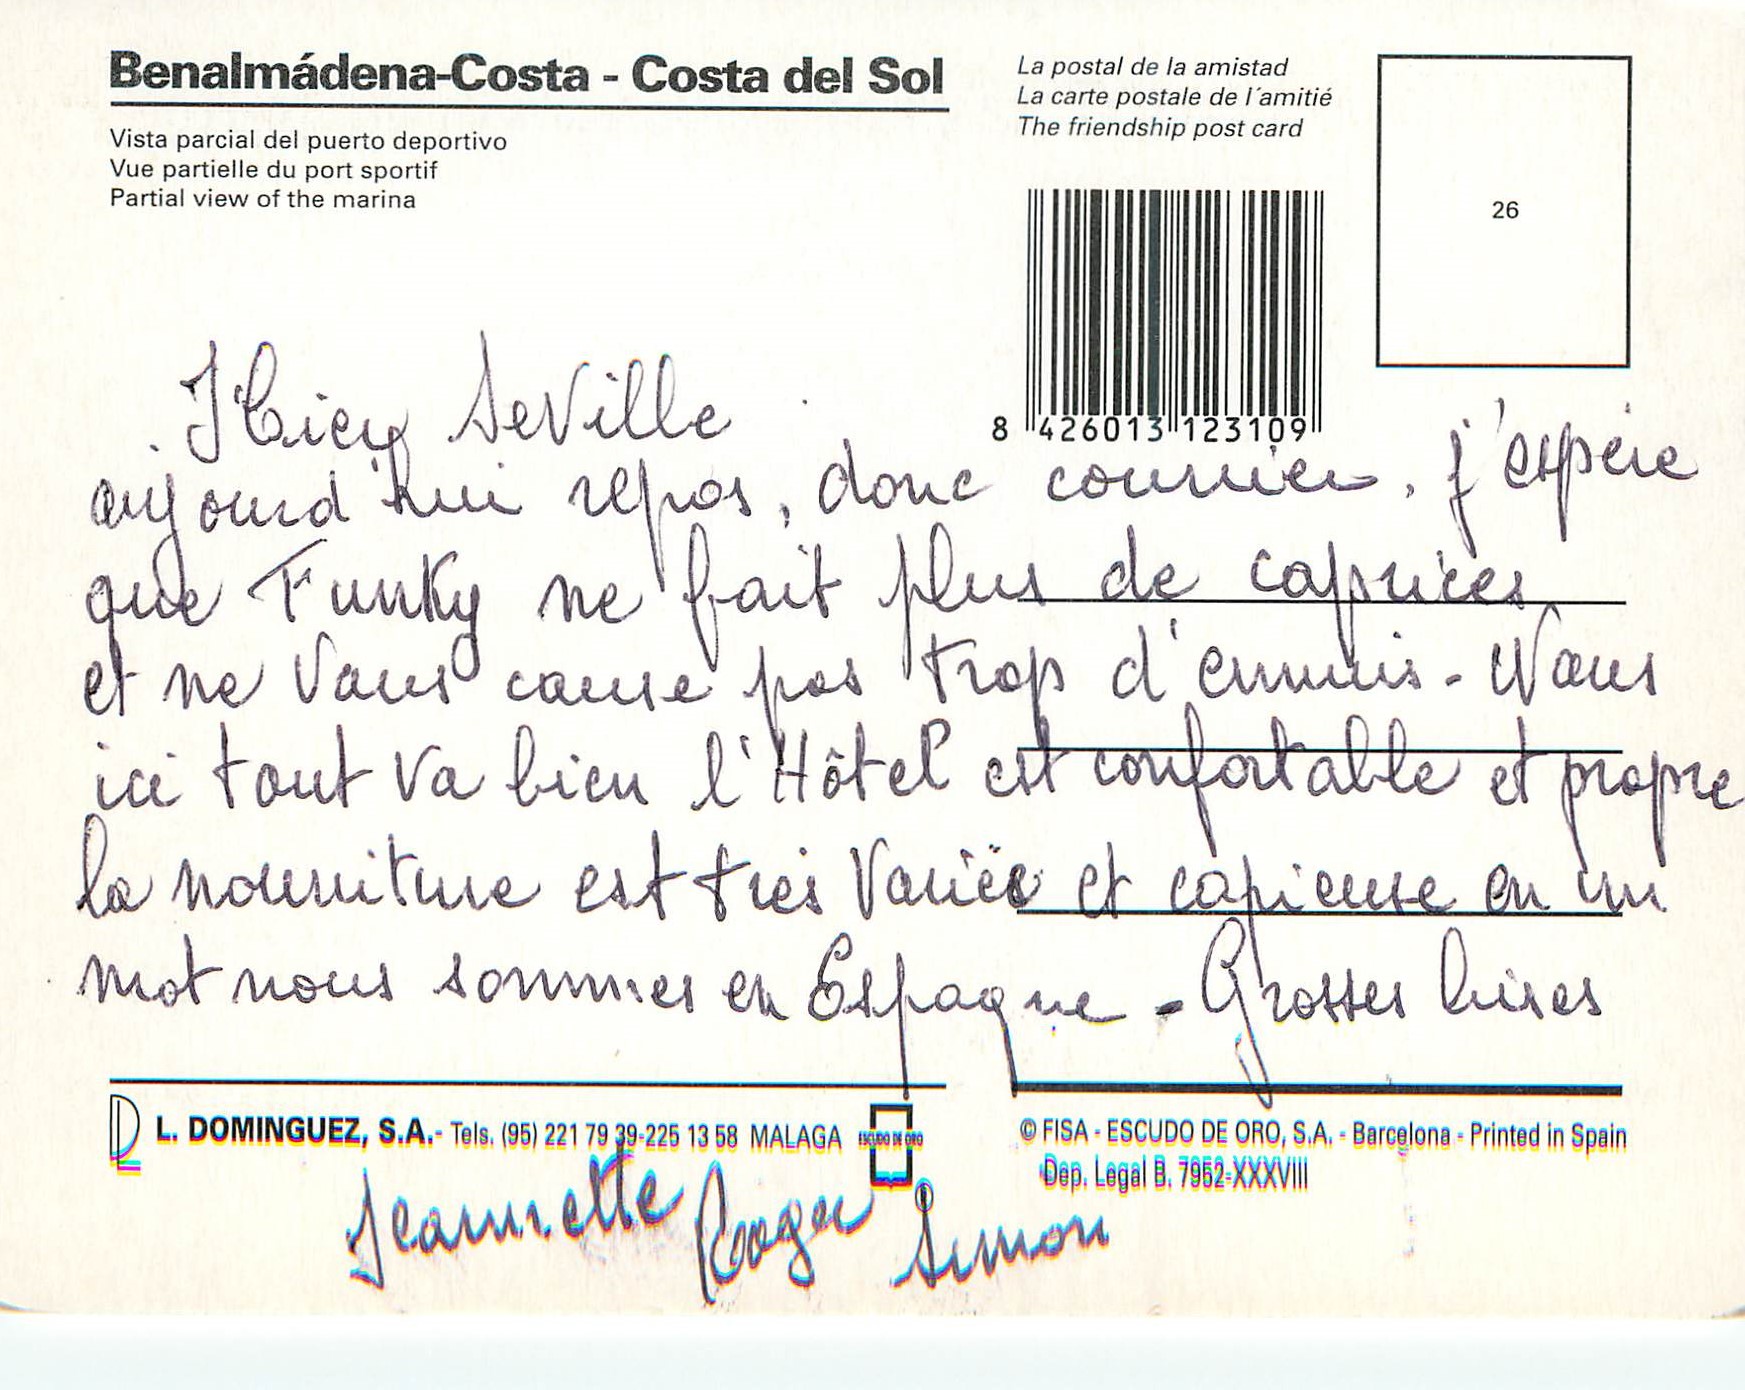 Benalmádena-Costa - Costa del Sol
Vista parcial del puerto deportivo
Vue partielle du port sportif
Partial view of the marina
La postal de la amistad
La carte postale de l´amitié
The friendship post card
26
8 426013 123109
Hier SeVille
aujourd'hui repos, donc courrier. j'espère
que Funky ne fait plus de caprices
et ne Vous cause pas trop d'ennuis - Nous
ici tout va bien l'Hôtel est confortable et propre
la nourriture est très Variée et copieuse en un
mot nous sommes en Espagne - Grosses bises
L. DOMINGUEZ, S.A. - Tels. (95) 221 79 39-225 13 58 MALAGA
ESCUDO DE ORO
© FISA - ESCUDO DE ORO, S.A. - Barcelona - Printed in Spain
Dep. Legal B. 7952-XXXVIII
Jeannette Roger Simon